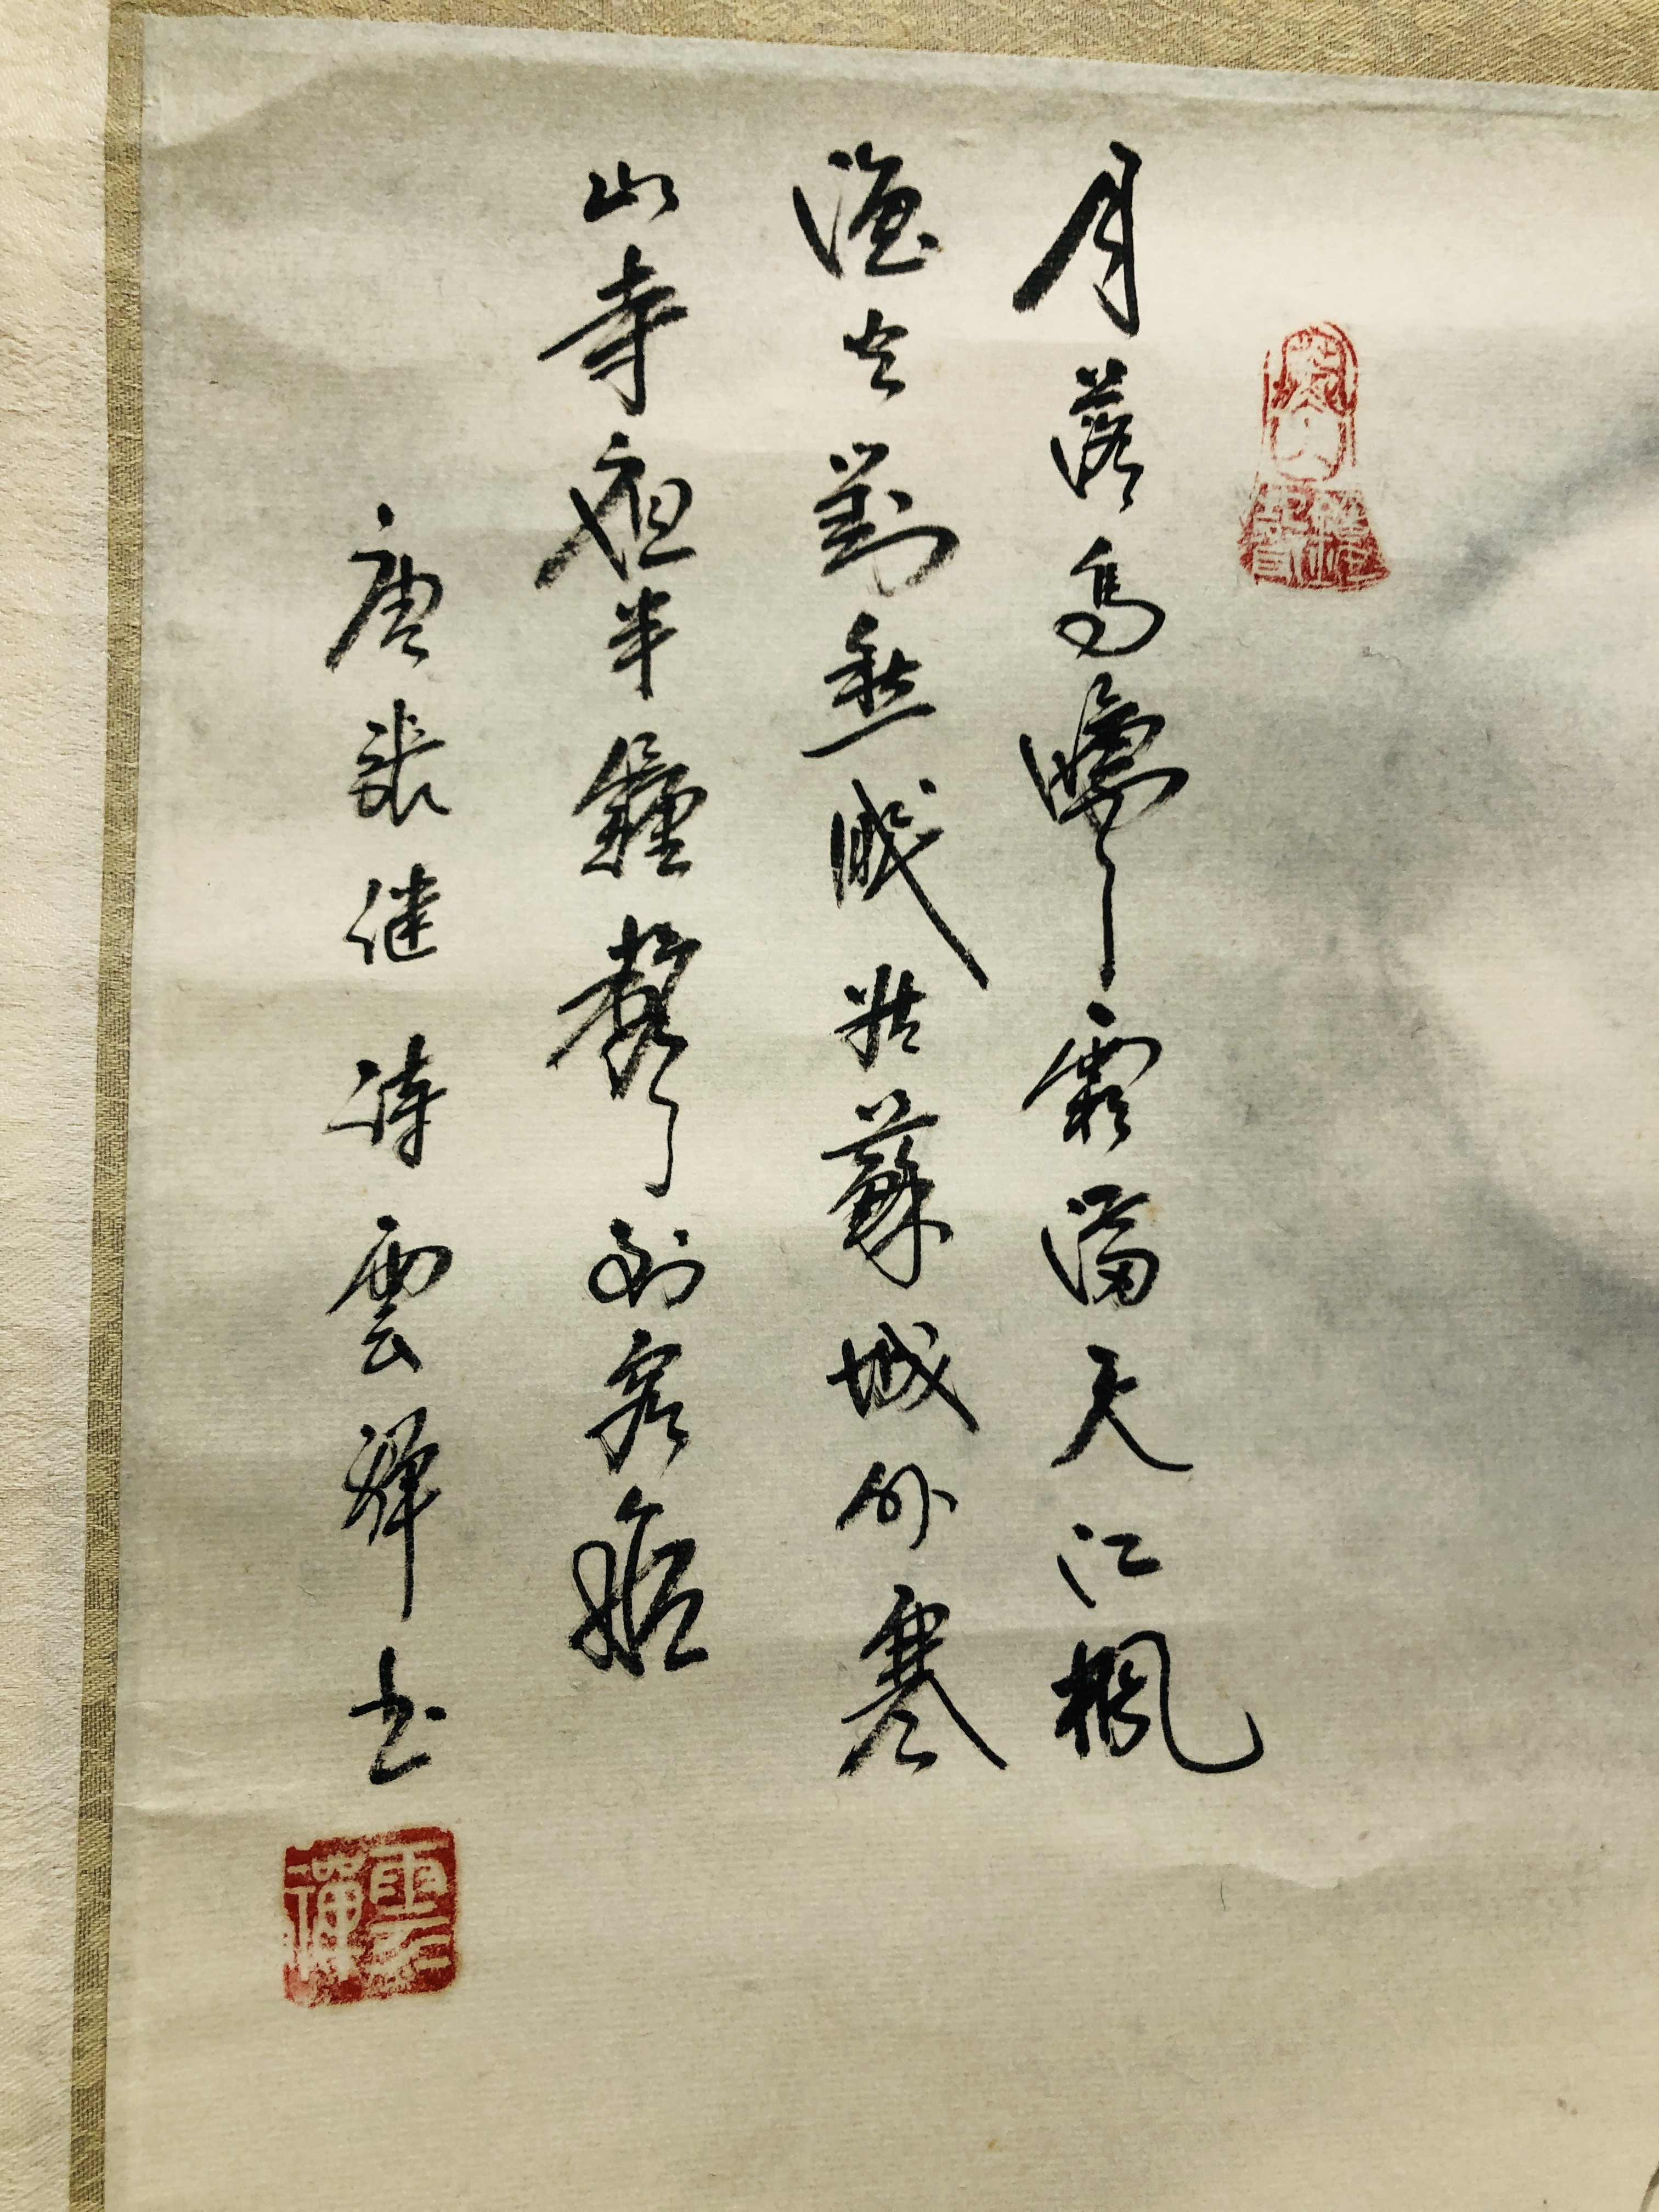 月落烏啼霜滿天江楓
漁火對愁眠姑蘇城外寒
山寺夜半鐘聲到客船
唐張繼詩雲輝書
雲